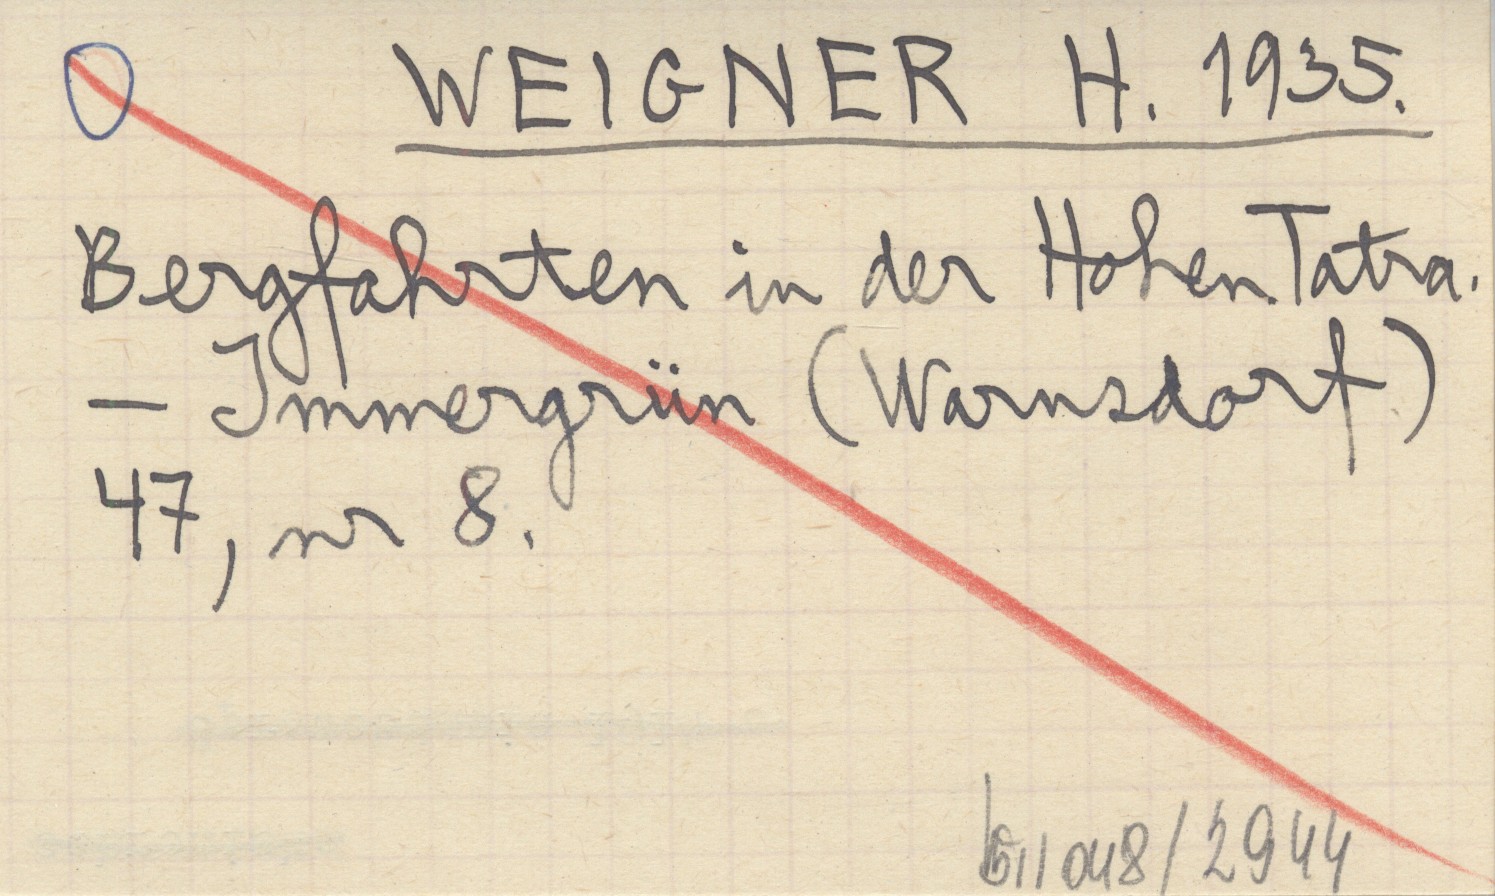 WEIGNER H. 1935.
Bergfahrten in der Hohen Tatra.
— Immergrün (Warnsdorf)
47, nr 8.
048/2944